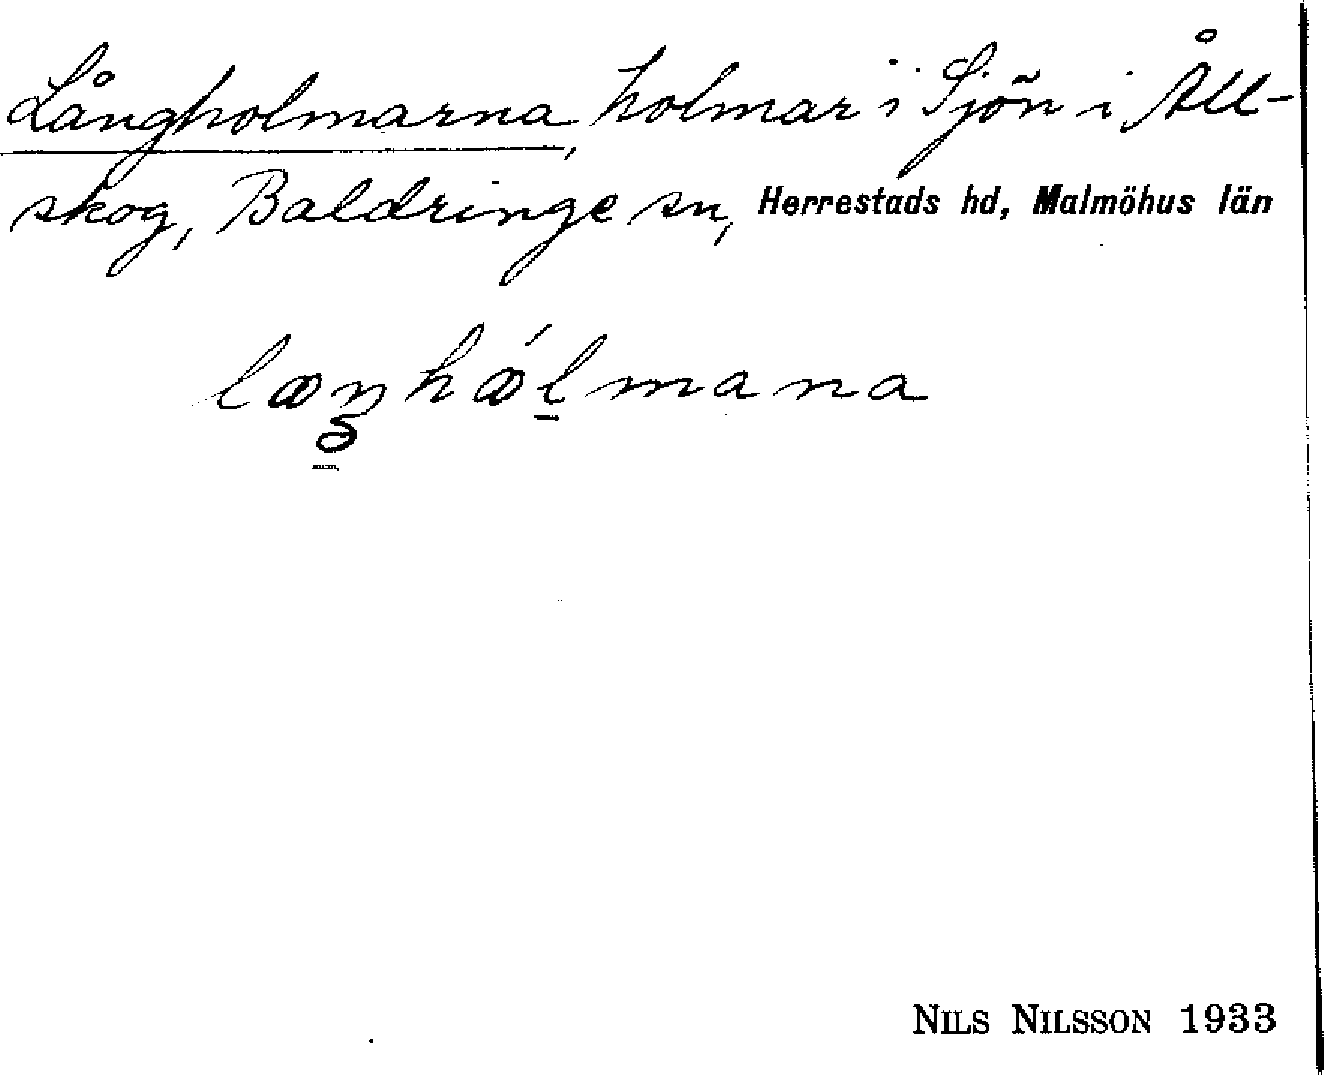 Långholmarna, holmar i Sjön i Åll-
skog, Baldringe sn, Herrestads hd, Malmöhus län
NILS NILSSON 1933